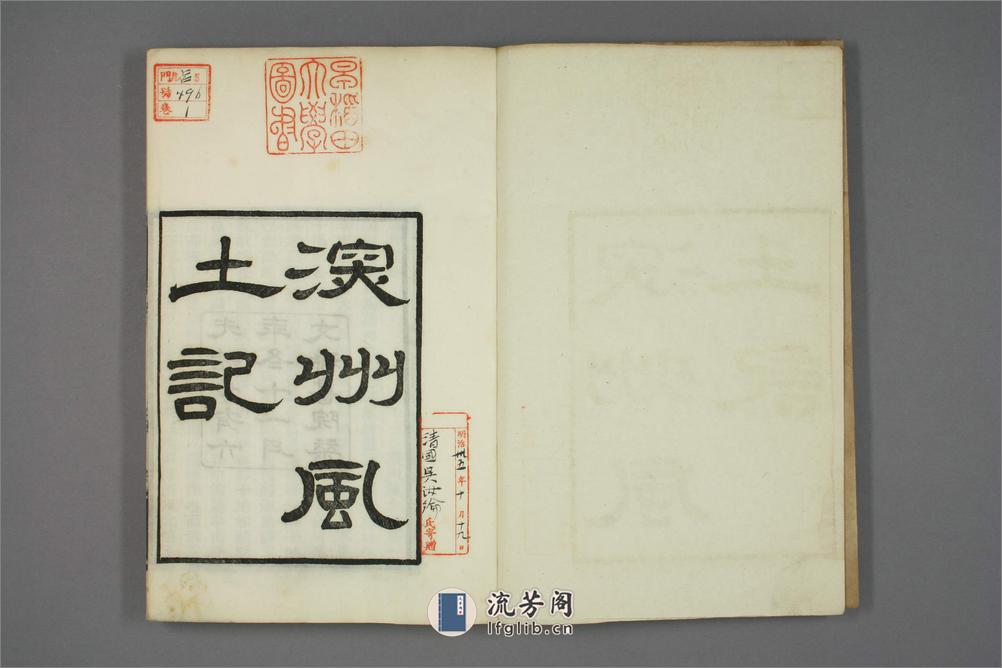 早稻田
大學
圖書
496
1
深州風
土記
明治卅五年十月十九日
清國吳汝綸氏寄贈
流芳阁
lfglib.cn